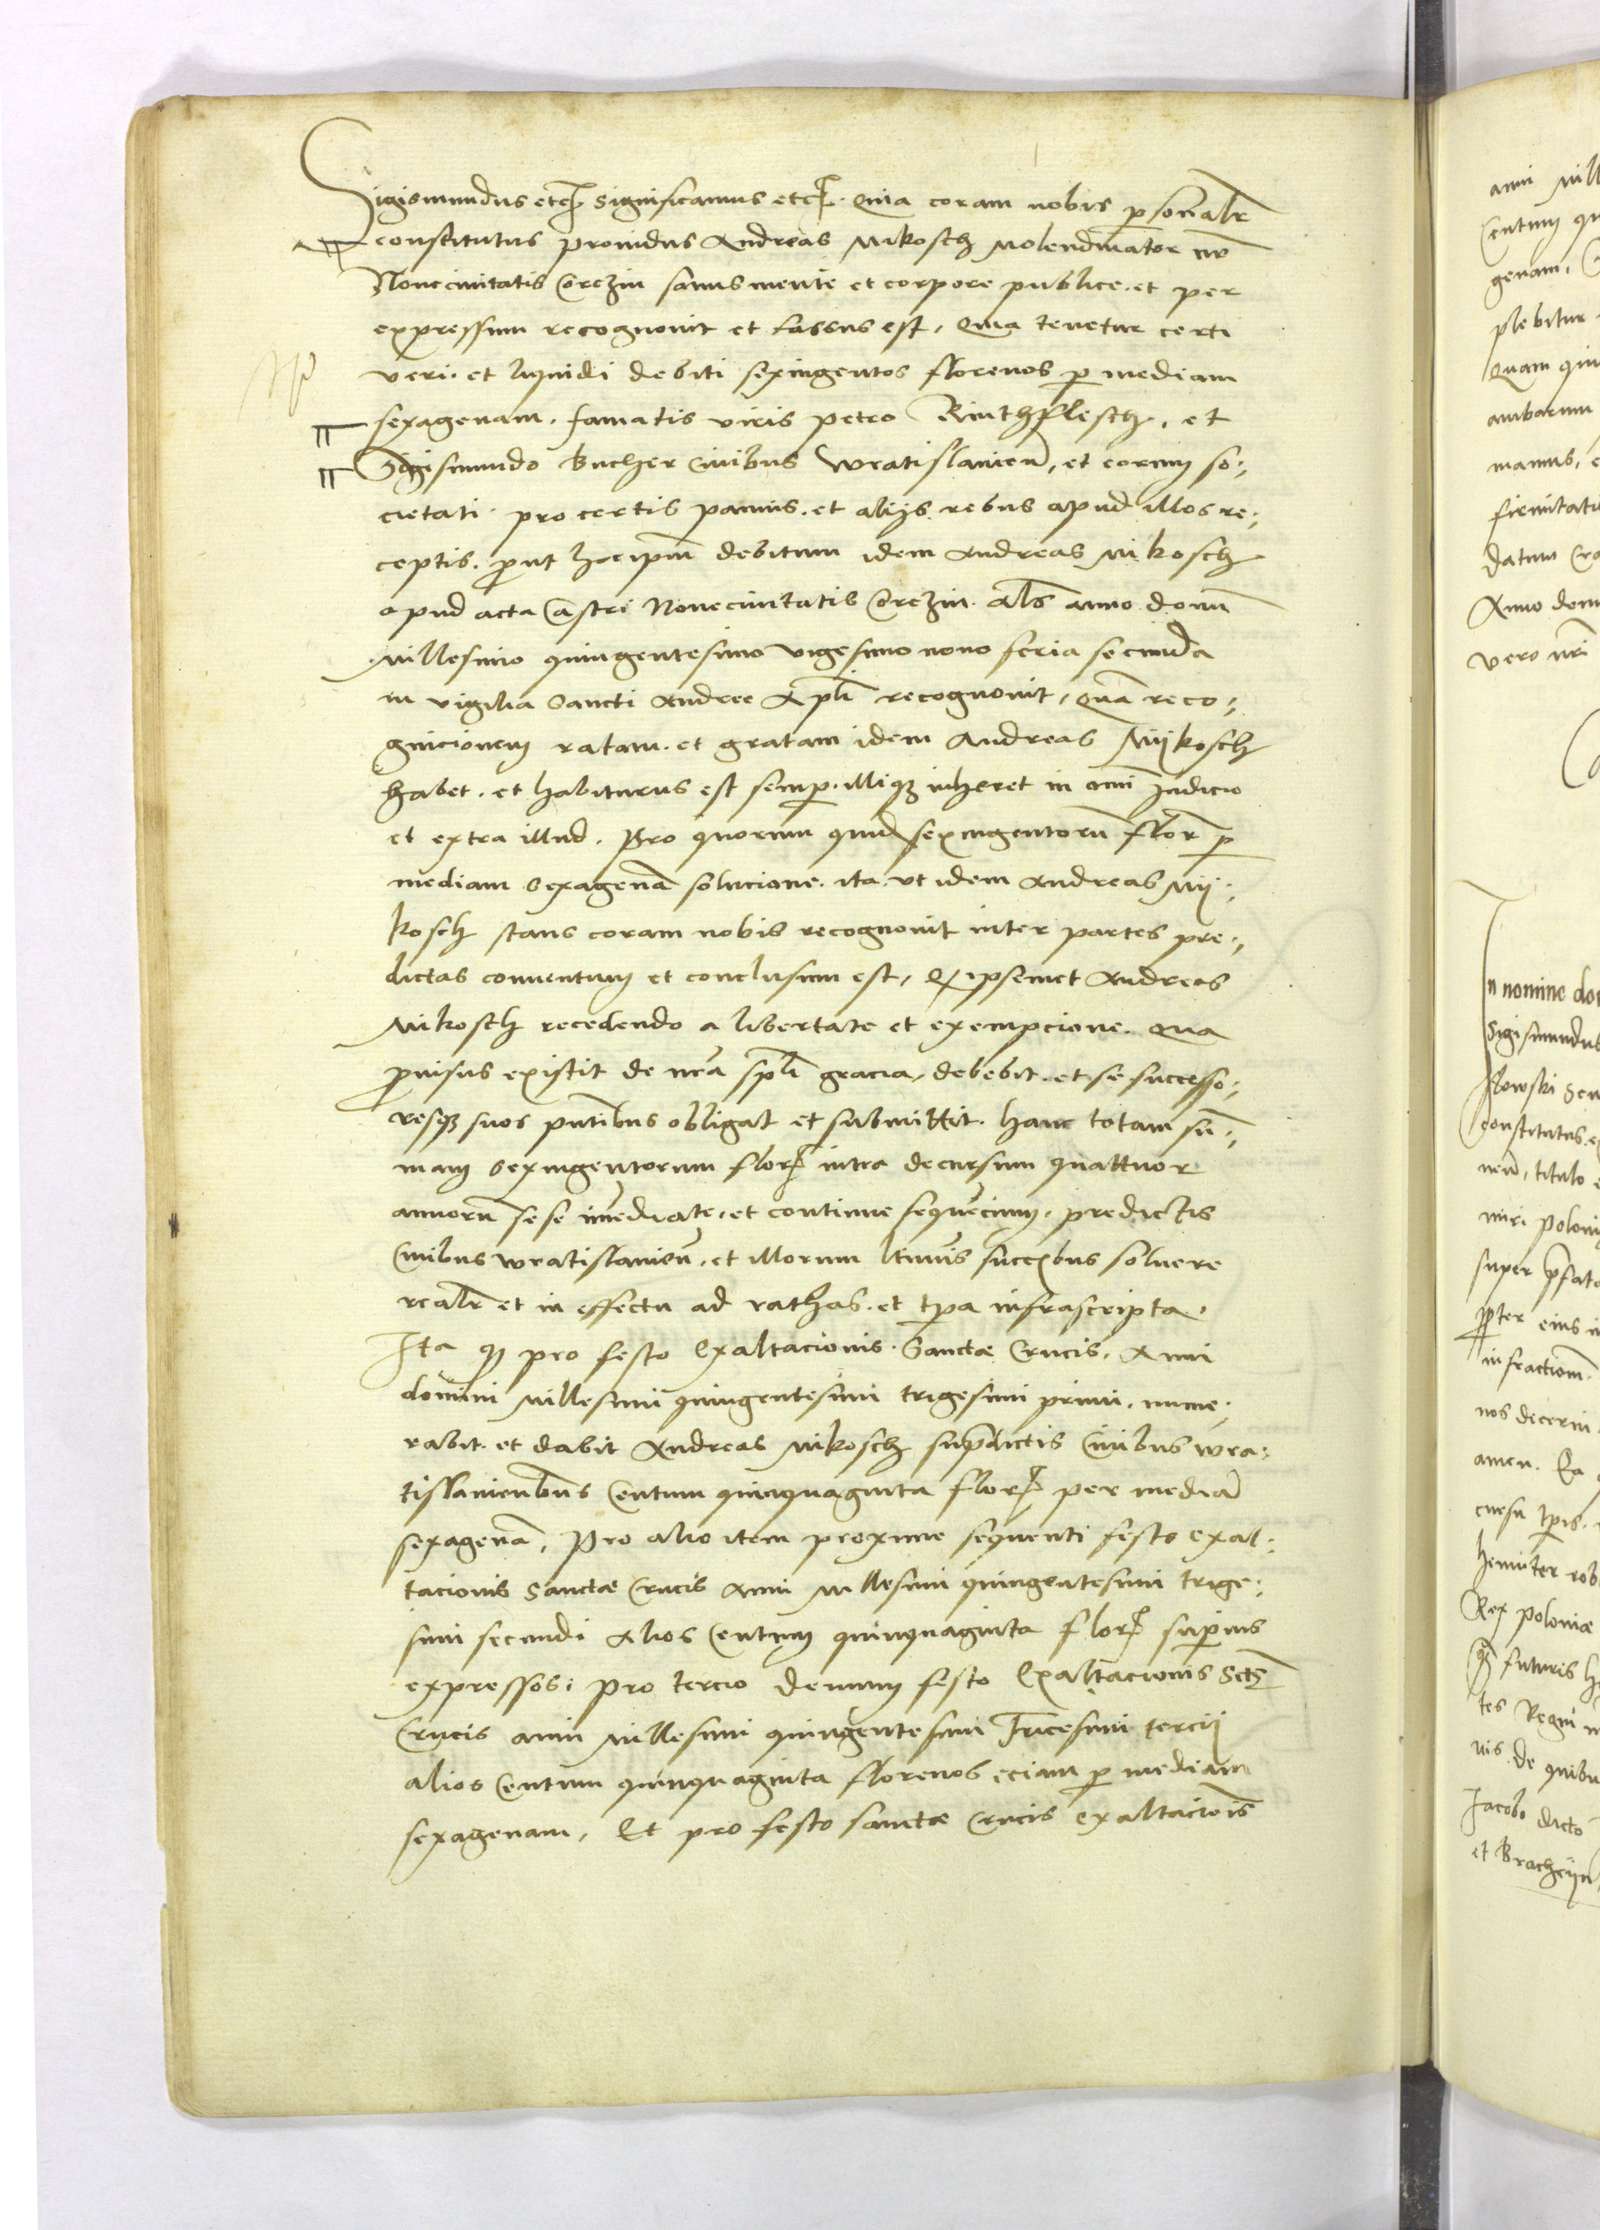 Sigismundus etc̄ significamus etc̄. Quia coram nobis ꝑsonalr̄
constitutus prouidus Andreas Mikosch Molendinator nr̄
Nouecivitatis Corczin sanus mente et corpore publice. et per
expressum recognouit et fassus est, Quia tenetur certi
veri. et liquidi debiti sexingentos florenos ꝑ mediam
sexagenam. famatis viris petro Rinthflesch, et
Sigismundo Bucher Ciuibus Wratislauien̄, et eorum so:
cietati. pro certis pannis. et alijs rebus apud illos re:
ceptis. ꝓut hocipm̄ debitum idem Andreas Mikosch
apud acta Castri Nouecivitatis Corczin. als̄ anno domī
Millesimo quingentesimo vigesimo nono feria secunda
in vigilia Sancti Andree Apl̄i recognouit, Quā reco:
gnicionem ratam. et gratam idem Andreas Mijkosch
habet. et habiturus est semꝑ. illiqꝫ inheret in om̄i Iudicio
et extra illud. Pro quorum quid sexingentorū flor̄ ꝑ
mediam sexagenā solucione. ita. vt idem Andreas Mij:
kosch stans coram nobis recognouit inter partes pre:
dictas conuentum et conclusum est, Qꝫ ipsemet Andreas
Mikosch recedendo a libertate et exempcione. qua
ꝓuisus existit de nr̄a spāli gracia, debebit. et se successo:
resqꝫ suos pn̄tibus obligat et submittit. hanc totam sū:
mam sexingentorum flor̄ intra decursum quattuor
annorū sese īmediate. et continue sequēcium. predictis
Ciuibus wratislauien̄. et illorum ltimis succ̄ibus soluere
realr̄ et in effectu ad rathas. et tꝑa infrascripta.
Ita qꝫ pro festo Exaltacionis. Sanctæ Crucis. Anni
domini Millesimi quingentesimi trigesimi primi. nume:
rabit. et dabit Andreas Mikosch supradictis Ciuibus wra:
tislauien̄bus Centum quinquaginta flor̄ per mediā
sexagenā, Pro alio item proxime sequenti festo exal:
tacionis Sanctæ Crucis Anni Millesimi quingentesimi trige:
simi secundi Alios Centum quinquaginta flor̄ suꝑius
expressos: pro tercio demum festo Exaltacionis Sctꝫ̄
Crucis anni Millesimi quingentesimi Tricesimi tercij
alios Centum quinquaginta florenos eciam ꝑ mediam
sexagenam, Et pro festo sanctæ Crucis exaltaciōis
anni Mill
Centum qu
genam,
plebitur
Quam qui
ambarum
manus,
firmitate
Datum Cra
Anno dom
vero nr̄i
In nomine do
Sigismundus
constitutus.
nen̄, titulo
miri poloni
super p̄fato
ꝓpter eius i
infractionm̄
nos decerni
amen. Ea
cursu tꝑis.
Rex poloniæ
qꝫ futuris h
tes Regni n
nis. de quibu
Iacobo dicto
et Brachcijn